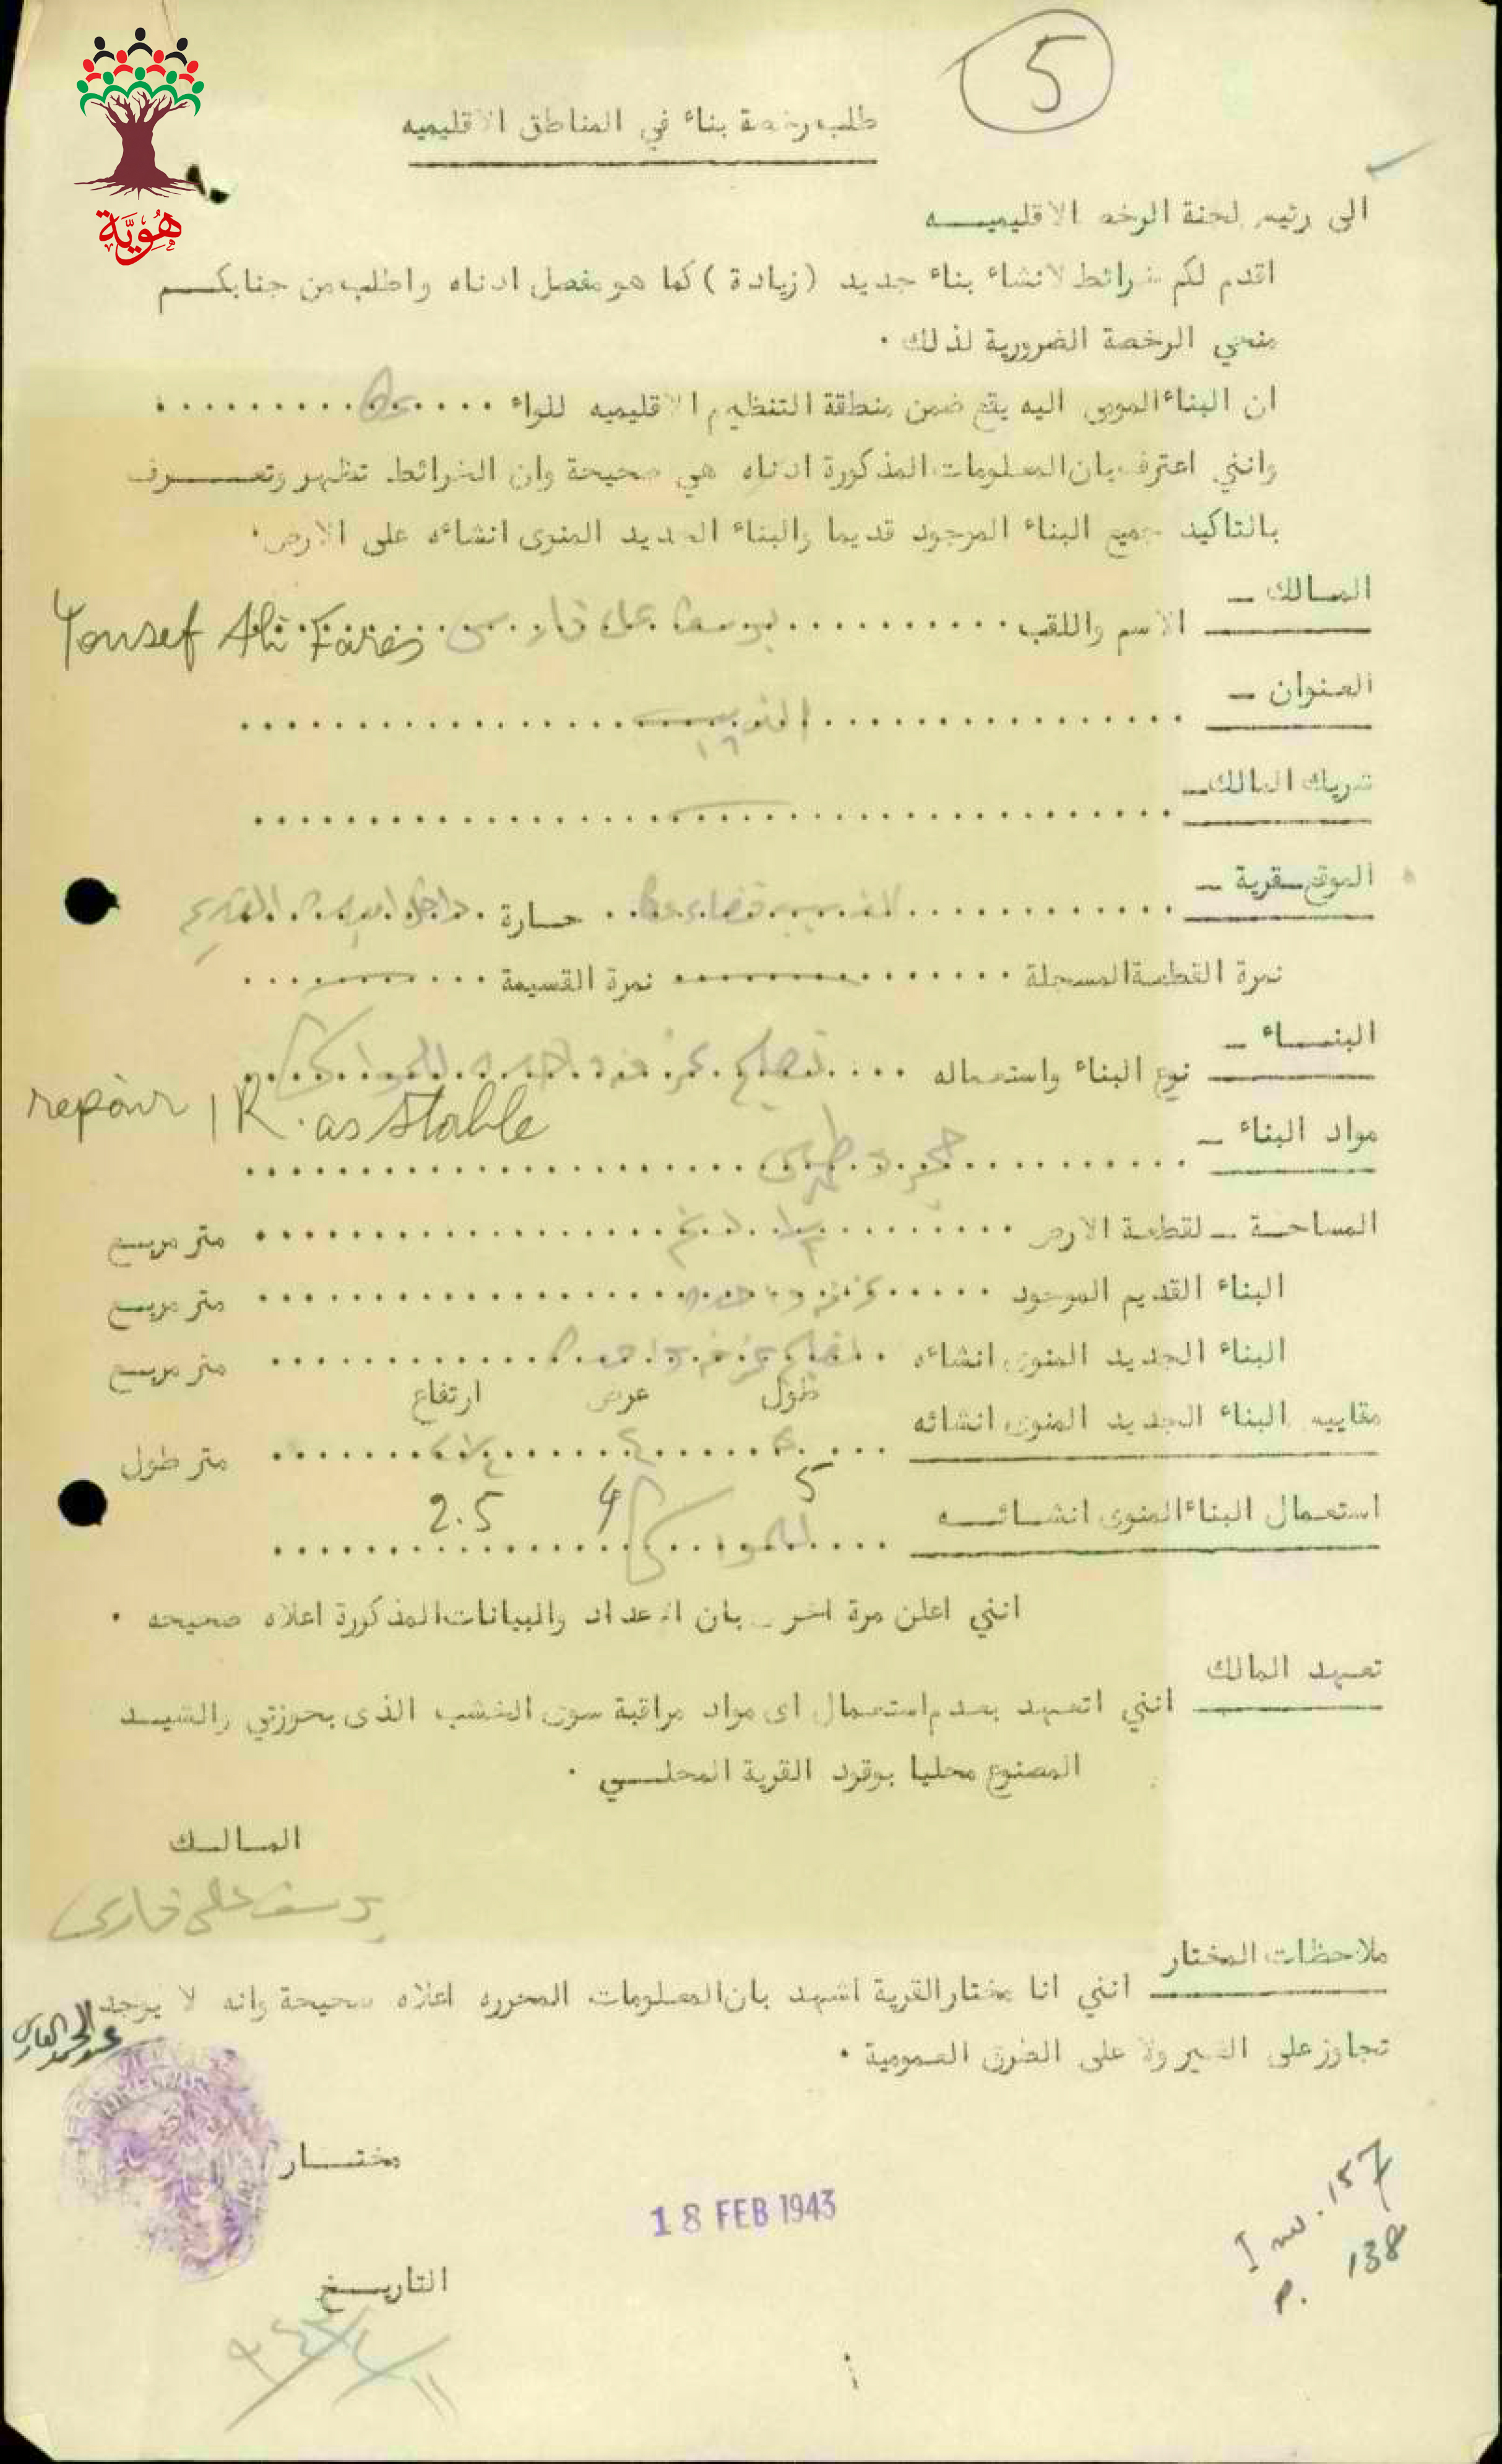 5
هُوِيَّة
طلب رخصة بناء في المناطق الاقليميه
الى رئيس لجنة الرخص الاقليميـــه
اقدم لكم خرائط لانشاء بناء جديد (زيادة) كما هو مفصل ادناه واطلب من جنابكـــم
منحي الرخصة الضرورية لذلك .
ان البناء المومى اليه يقع ضمن منطقة التنظيم الاقليميه للواء
وانني اعترف بان المعلومات المذكورة ادناه هي صحيحة وان الخرائط تظهر وتعـــرف
بالتاكيد جميع البناء الموجود قديما والبناء الجديد المنوى انشاءه على الارض .
المالك –
الاسم واللقب يوسف علي فارس Yousef Ali Fares
العنوان –
شريك المالك –
الموقع – قرية – قضاء عكا حارة داخل القديم
نمرة القطعة المسجلة نمرة القسيمة
البنـــاء –
نوع البناء واستعماله تصليح غرفه للمواشي
repair 1 R. as stable
مواد البناء – حجر وطين
المساحة – لقطعة الارض متر مربع
البناء القديم الموجود غرفه واحده متر مربع
البناء الجديد المنوى انشاءه غرفه واحده متر مربع
طول عرض ارتفاع
مقاييس البناء الجديد المنوى انشائه ٥ ٤ متر طول
5 4 2.5
استعمال البناء المنوى انشائـــه للمواشي
انني اعلن مرة اخرى بان الاعداد والبيانات المذكورة اعلاه صحيحه .
تعهد المالك
انني اتعهد بعدم استعمال اى مواد مراقبة سوى الخشب الذى بحوزتي والشيـــد
المصنوع محليا بوقود القرية المحلـــي .
المـالـك
يوسف علي فارس
ملاحظات المختار
انني انا مختار القرية اشهد بان المعلومات المحرره اعلاه صحيحة وانه لا يوجد
تجاوز على الغير ولا على الطرق العمومية .
مختـــار
18 FEB 1943
Inv. 157
P. 138
التاريـــخ